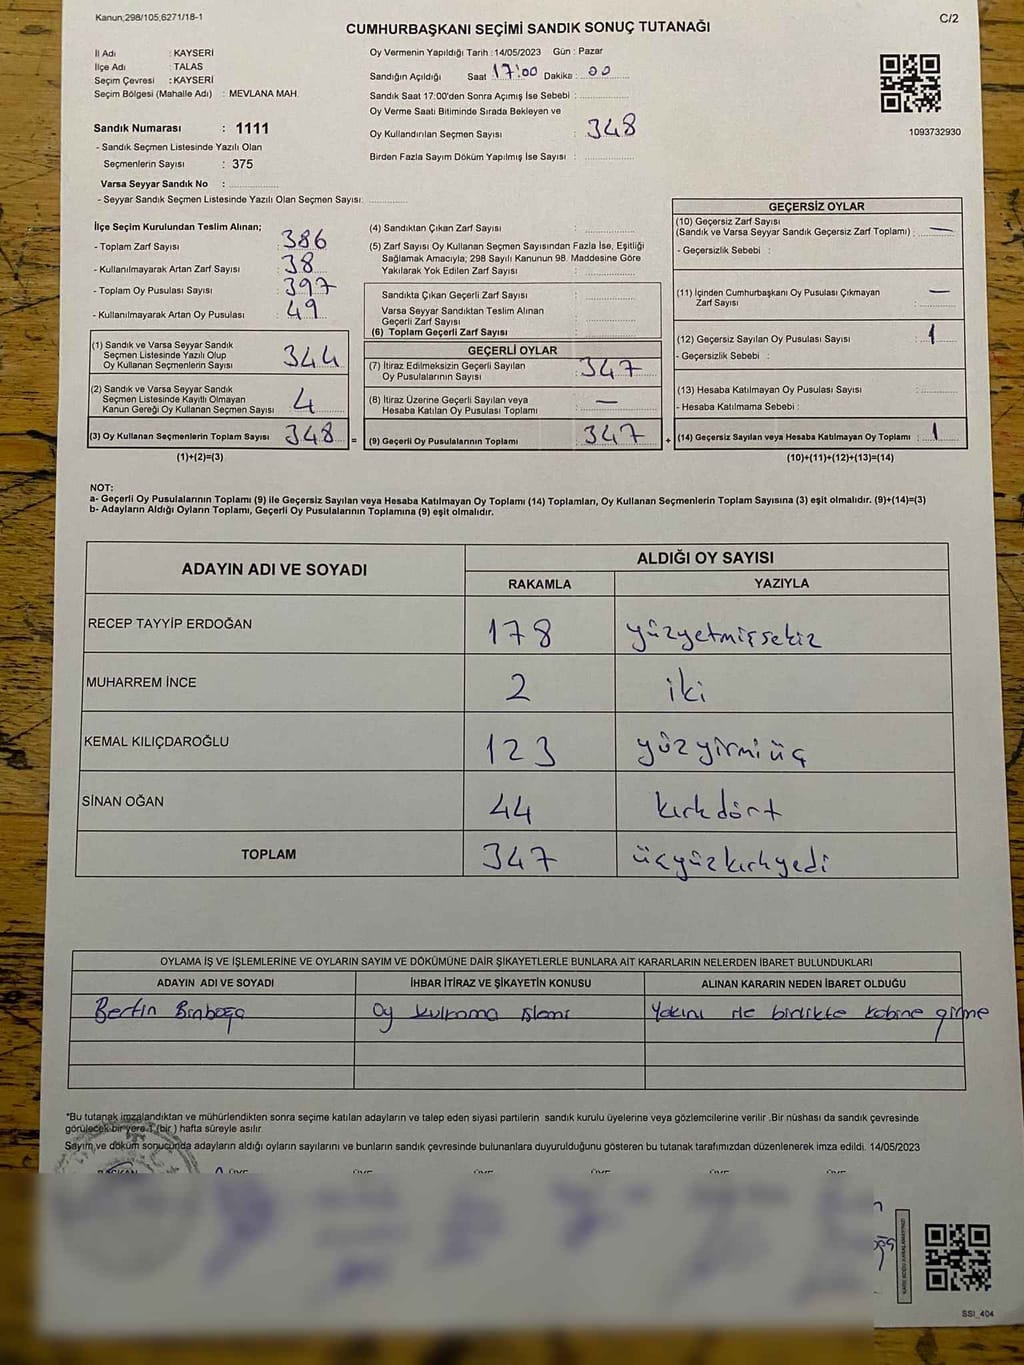 Kanun;298/105,6271/18-1
C/2
CUMHURBAŞKANI SEÇİMİ SANDIK SONUÇ TUTANAĞI
İl Adı : KAYSERİ
İlçe Adı : TALAS
Seçim Çevresi : KAYSERİ
Seçim Bölgesi (Mahalle Adı) : MEVLANA MAH.
Sandık Numarası : 1111
- Sandık Seçmen Listesinde Yazılı Olan
Seçmenlerin Sayısı : 375
Varsa Seyyar Sandık No :
- Seyyar Sandık Seçmen Listesinde Yazılı Olan Seçmen Sayısı:
Oy Vermenin Yapıldığı Tarih : 14/05/2023 Gün : Pazar
Sandığın Açıldığı Saat 17:00 Dakika : 00
Sandık Saat 17:00'den Sonra Açımış İse Sebebi :
Oy Verme Saati Bitiminde Sırada Bekleyen ve
Oy Kullandırılan Seçmen Sayısı : 348
Birden Fazla Sayım Döküm Yapılmış İse Sayısı :
1093732930
İlçe Seçim Kurulundan Teslim Alınan;
- Toplam Zarf Sayısı : 386
- Kullanılmayarak Artan Zarf Sayısı : 38
- Toplam Oy Pusulası Sayısı : 397
- Kullanılmayarak Artan Oy Pusulası : 49
(1) Sandık ve Varsa Seyyar Sandık
Seçmen Listesinde Yazılı Olup
Oy Kullanan Seçmenlerin Sayısı : 344
(2) Sandık ve Varsa Seyyar Sandık
Seçmen Listesinde Kayıtlı Olmayan
Kanun Gereği Oy Kullanan Seçmen Sayısı : 4
(3) Oy Kullanan Seçmenlerin Toplam Sayısı : 348
(1)+(2)=(3)
(4) Sandıktan Çıkan Zarf Sayısı :
(5) Zarf Sayısı Oy Kullanan Seçmen Sayısından Fazla İse, Eşitliği
Sağlamak Amacıyla; 298 Sayılı Kanunun 98. Maddesine Göre
Yakılarak Yok Edilen Zarf Sayısı :
Sandıkta Çıkan Geçerli Zarf Sayısı :
Varsa Seyyar Sandıktan Teslim Alınan
Geçerli Zarf Sayısı :
(6) Toplam Geçerli Zarf Sayısı :
GEÇERLİ OYLAR
(7) İtiraz Edilmeksizin Geçerli Sayılan
Oy Pusulalarının Sayısı : 347
(8) İtiraz Üzerine Geçerli Sayılan veya
Hesaba Katılan Oy Pusulası Toplamı : —
= (9) Geçerli Oy Pusulalarının Toplamı : 347 +
GEÇERSİZ OYLAR
(10) Geçersiz Zarf Sayısı
(Sandık ve Varsa Seyyar Sandık Geçersiz Zarf Toplamı) : —
- Geçersizlik Sebebi :
(11) İçinden Cumhurbaşkanı Oy Pusulası Çıkmayan
Zarf Sayısı : —
(12) Geçersiz Sayılan Oy Pusulası Sayısı : 1
- Geçersizlik Sebebi :
(13) Hesaba Katılmayan Oy Pusulası Sayısı :
- Hesaba Katılmama Sebebi :
(14) Geçersiz Sayılan veya Hesaba Katılmayan Oy Toplamı : 1
(10)+(11)+(12)+(13)=(14)
NOT:
a- Geçerli Oy Pusulalarının Toplamı (9) ile Geçersiz Sayılan veya Hesaba Katılmayan Oy Toplamı (14) Toplamları, Oy Kullanan Seçmenlerin Toplam Sayısına (3) eşit olmalıdır. (9)+(14)=(3)
b- Adayların Aldığı Oyların Toplamı, Geçerli Oy Pusulalarının Toplamına (9) eşit olmalıdır.
ADAYIN ADI VE SOYADI
ALDIĞI OY SAYISI
RAKAMLA YAZIYLA
RECEP TAYYİP ERDOĞAN 178 yüzyetmişsekiz
MUHARREM İNCE 2 iki
KEMAL KILIÇDAROĞLU 123 yüzyirmiüç
SİNAN OĞAN 44 kırkdört
TOPLAM 347 üçyüzkırkyedi
OYLAMA İŞ VE İŞLEMLERİNE VE OYLARIN SAYIM VE DÖKÜMÜNE DAİR ŞİKAYETLERLE BUNLARA AİT KARARLARIN NELERDEN İBARET BULUNDUKLARI
ADAYIN ADI VE SOYADI İHBAR İTİRAZ VE ŞİKAYETİN KONUSU ALINAN KARARIN NEDEN İBARET OLDUĞU
Oy işlemi Yakını ile birlikte kabine girme
*Bu tutanak imzalandıktan ve mühürlendikten sonra seçime katılan adayların ve talep eden siyasi partilerin sandık kurulu üyelerine veya gözlemcilerine verilir .Bir nüshası da sandık çevresinde
görülecek bir yere 1 (bir ) hafta süreyle asılır.
Sayım ve döküm sonucunda adayların aldığı oyların sayılarını ve bunların sandık çevresinde bulunanlara duyurulduğunu gösteren bu tutanak tarafımızdan düzenlenerek imza edildi. 14/05/2023
SSI_404